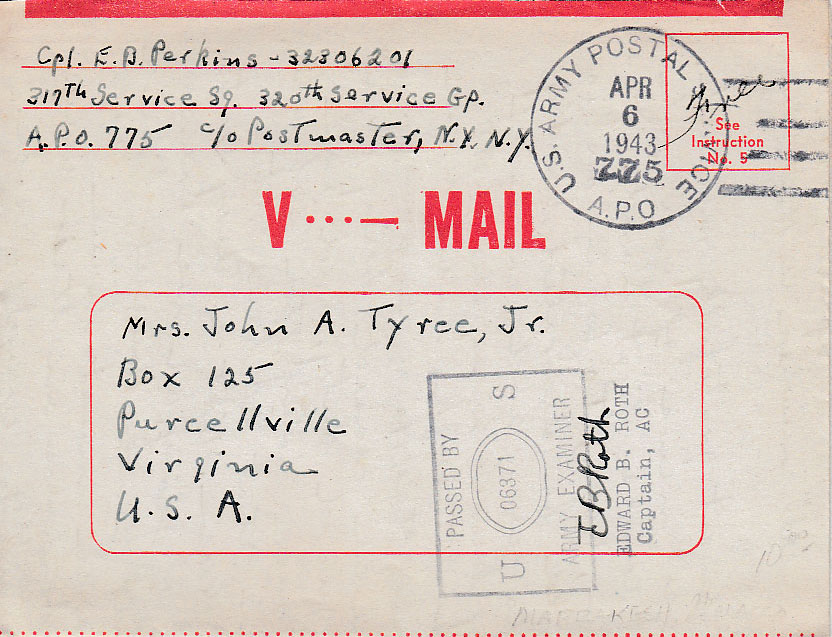 Cpl. E. B. Perkins - 32306201
317th Service Sq. 320th Service Gp.
A.P.O. 775 c/o Postmaster, N.Y. N.Y.
U.S. ARMY POSTAL SERVICE
APR
6
1943
775
A.P.O
Free
See
Instruction
No. 5
V···— MAIL
Mrs. John A. Tyree, Jr.
Box 125
Purcellville
Virginia
U. S. A.
PASSED BY
U S
06371
ARMY EXAMINER
E B Roth
EDWARD B. ROTH
Captain, AC
10.00
MARRAKESH